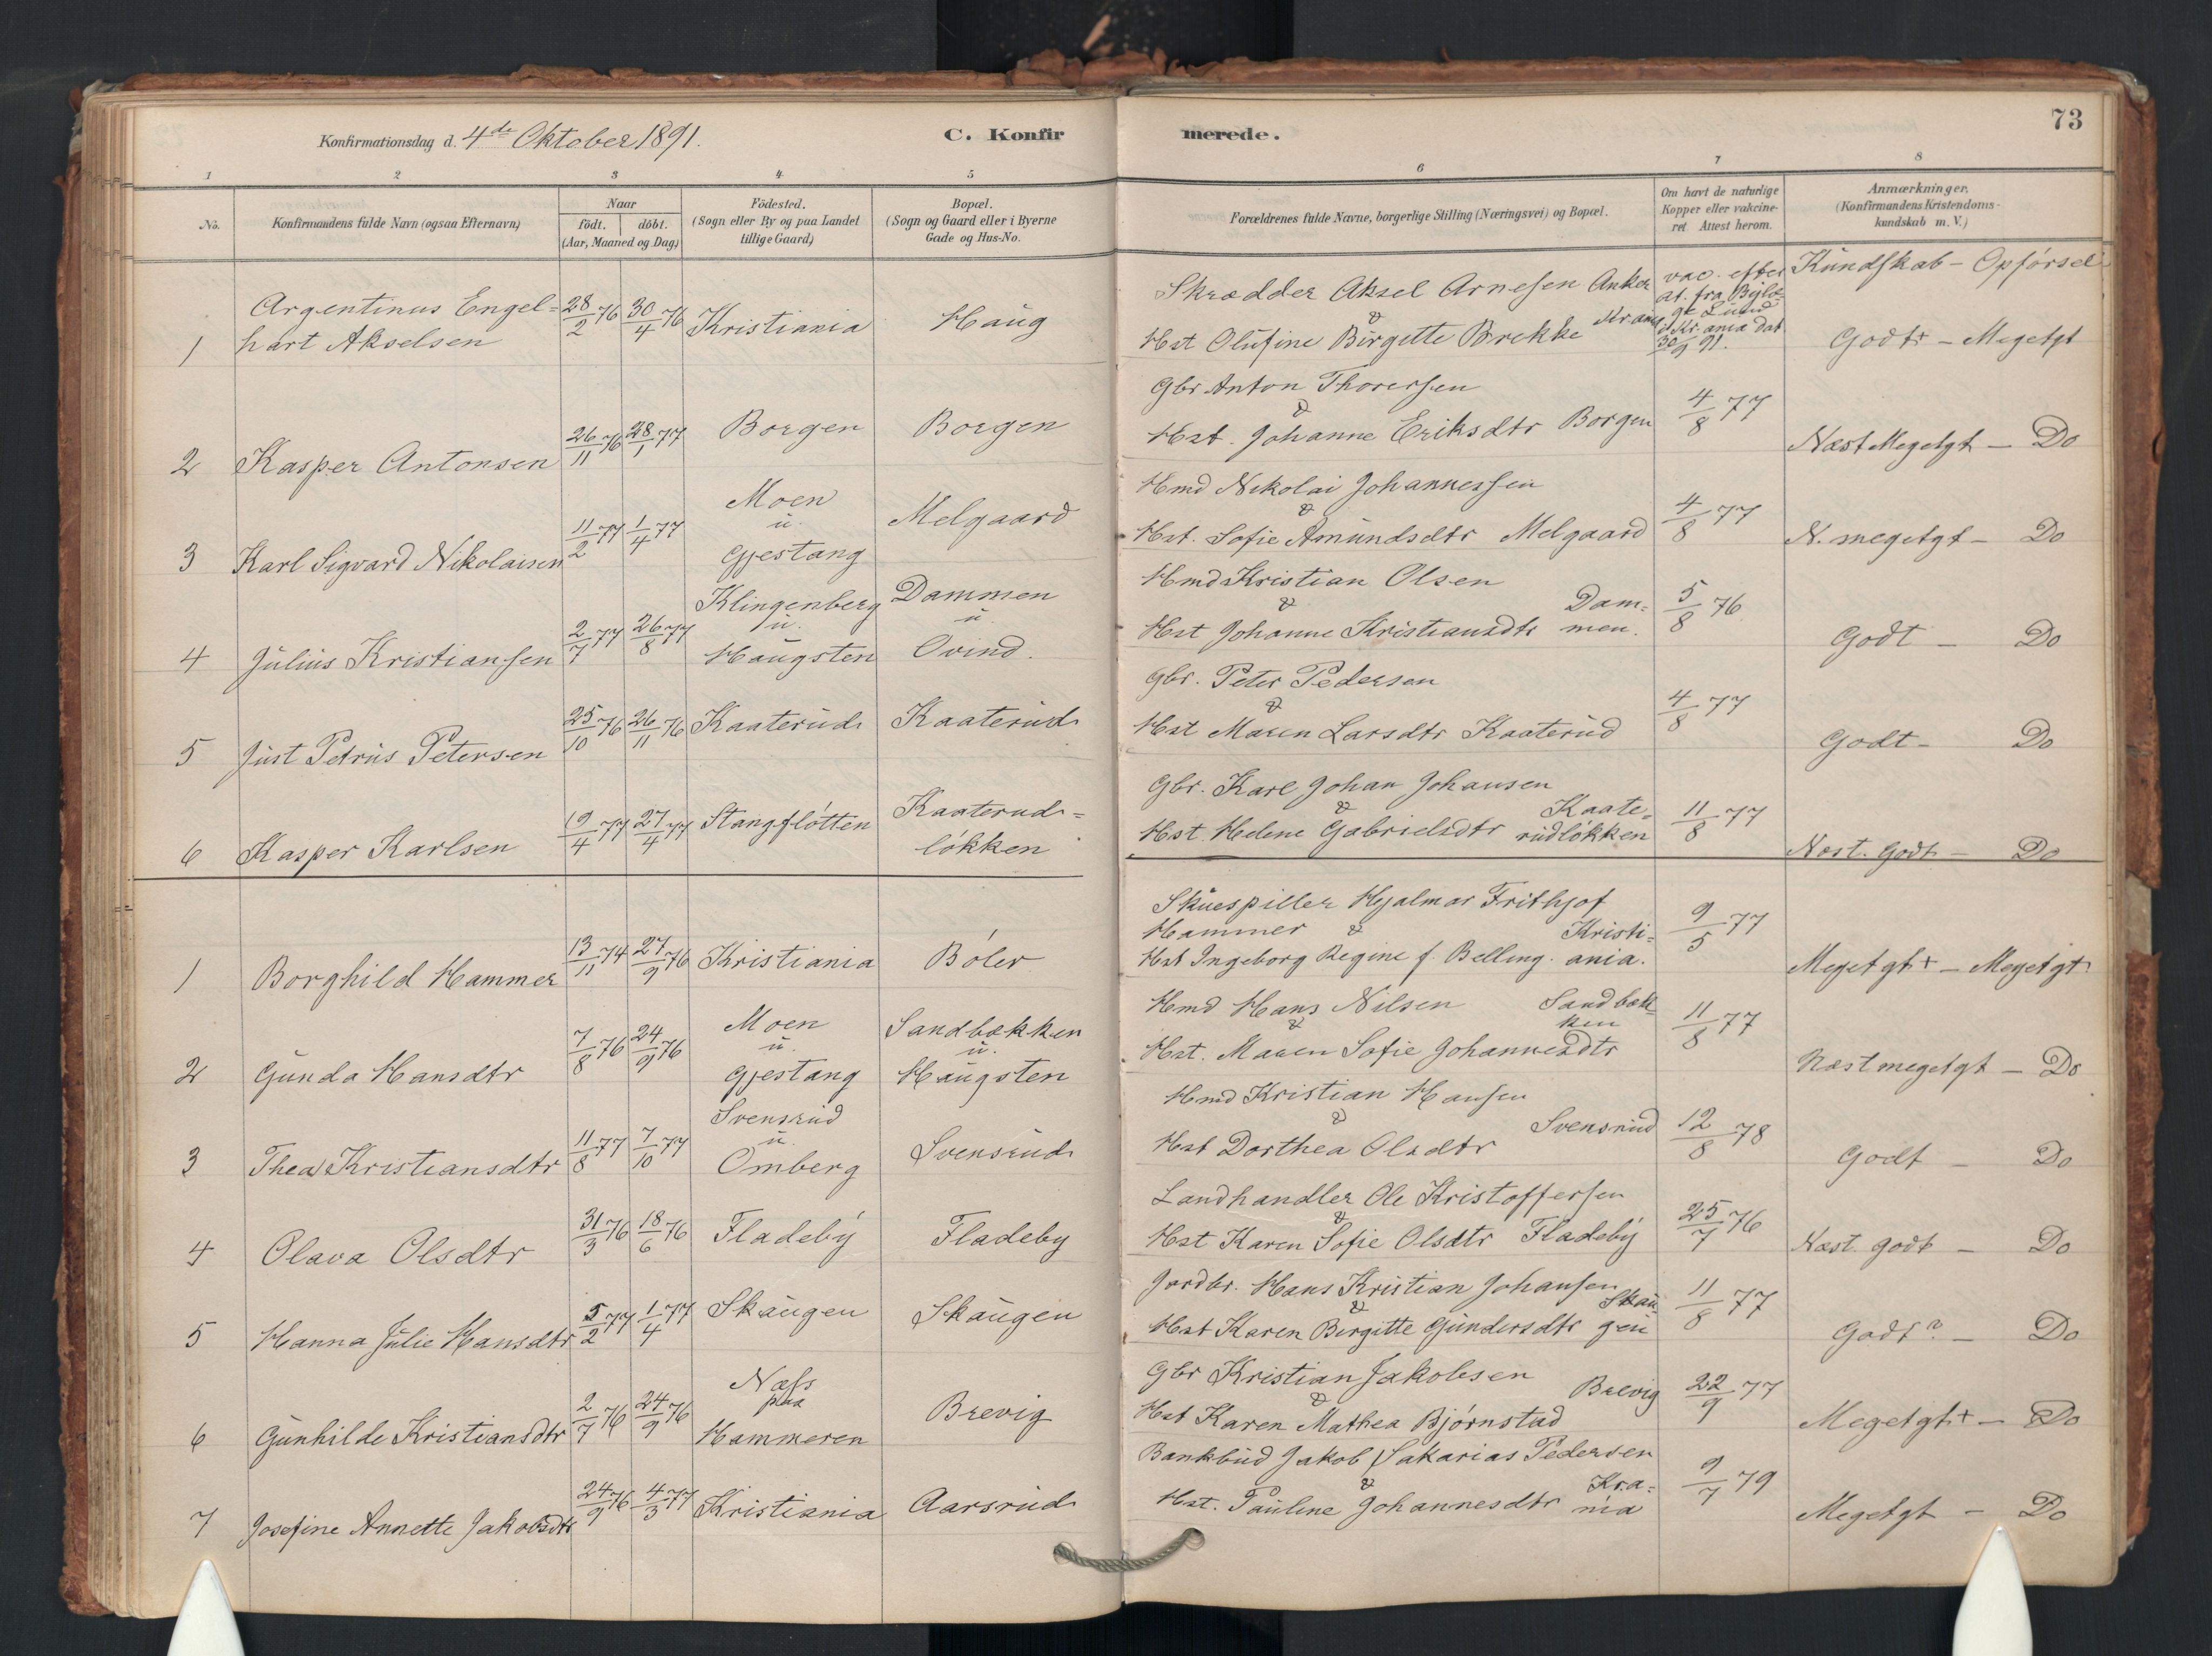 73
Konfirmationsdag d. 4de Oktober 1891.
C. Konfirmerede.
1 2 3 4 5 6 7 8
No.
Konfirmandens fulde Navn (ogsaa Efternavn)
Naar
födt. döbt.
(Aar, Maaned og Dag)
Födested.
(Sogn eller By og paa Landet
tillige Gaard)
Bopæl.
(Sogn og Gaard eller i Byerne
Gade og Hus-No.
Forældrenes fulde Navne, borgerlige Stilling (Næringsvei) og Bopæl.
Om havt de naturlige
Kopper eller vakcine-
ret. Attest herom.
Anmærkninger.
(Konfirmandens Kristendoms-
kundskab m. V.)
Kundskab - Opførsel
1 Argentinus Engel=
hart Akselsen
28/2 76 30/4 76 Kristiania Haug
Skrædder Aksel Arnesen Anker
&
Hst Olufine Birgitte Brekke Kr.ania
vac. efter
at. fra
Lund
i Kr.ania dat
30/9 91.
Godt+ - Megetgt
2 Kasper Antonsen 26/11 76 28/1 77 Borgen Borgen
Gbr Anton Thoresen
&
Hst. Johanne Eriksdtr Borgen
4/8 77
Næst Megetgt - Do
3 Karl Sigvard Nikolaisen 11/2 77 1/4 77
Moen
u.
Gjestang
Melgaard
Hmd Nikolai Johannessen
&
Hst. Sofie Amundsdtr Melgaard
4/8 77
N. megetgt - Do
4 Julius Kristiansen 2/7 77 26/8 77
Klingenberg
u.
Haugsten
Dammen
u.
Ovind.
Hmd Kristian Olsen
&
Hst Johanne Kristiansdtr Dam=
men.
5/8 76
Godt - Do
5 Just Petrus Petersen 25/10 76 26/11 76 Kaaterud Kaaterud
Gbr. Peter Pedersen
&
Hst Maren Larsdtr Kaaterud
4/8 77
Godt - Do
6 Kasper Karlsen 19/4 77 27/4 77 Stangfløtten
Kaaterud=
løkken
Gbr. Karl Johan Johansen
&
Hst Helene Gabrielsdtr Kaate=
rudløkken
11/8 77
Næst. Godt - Do
1 Borghild Hammer 13/11 74 27/9 76 Kristiania Bøler
Skuespiller Hjalmar Frithjof
Hammer &
Hst Ingeborg Regine f. Belling. Kristi=
ania.
9/5 77
Megetgt+ - Megetgt
2 Gunda Hansdtr 7/8 76 24/9 76
Moen
u.
Gjestang
Sandbækken
u.
Haugsten
Hmd Hans Nilsen Sandbæk
ken
&
Hst. Maren Sofie Johannesdtr
11/8 77
Næst megetgt - Do
3 Thea Kristiansdtr 11/8 77 7/10 77
Svensrud
u.
Omberg
Svensrud
Hmd Kristian Hansen
&
Hst Dorthea Olsdtr Svensrud
12/8 78
Godt - Do
4 Olava Olsdtr 31/3 76 18/6 76 Fladeby Fladeby
Landhandler Ole Kristoffersen
&
Hst Karen Sofie Olsdtr Fladeby
25/7 76
Næst. godt - Do
5 Hanna Julie Hansdtr 5/2 77 1/4 77 Skaugen Skaugen
Jordbr. Hans Kristian Johansen
&
Hst Karen Birgitte Gundersdtr Skau=
gen
11/8 77
Godt? - Do
6 Gunhilde Kristiansdtr 2/7 76 24/9 76
Næss
paa
Hammeren
Brevig
Gbr Kristian Jakobsen
&
Hst Karen Mathea Bjørnstad Brevig
22/9 77
Megetgt+ - Do
7 Josefine Annette Jakobsdtr 24/9 76 4/3 77 Kristiania Aarsrud
Bankbud Jakob Sakarias Pedersen
&
Hst. Pauline Johannesdtr Kra=
nia
9/7 79
Megetgt - Do